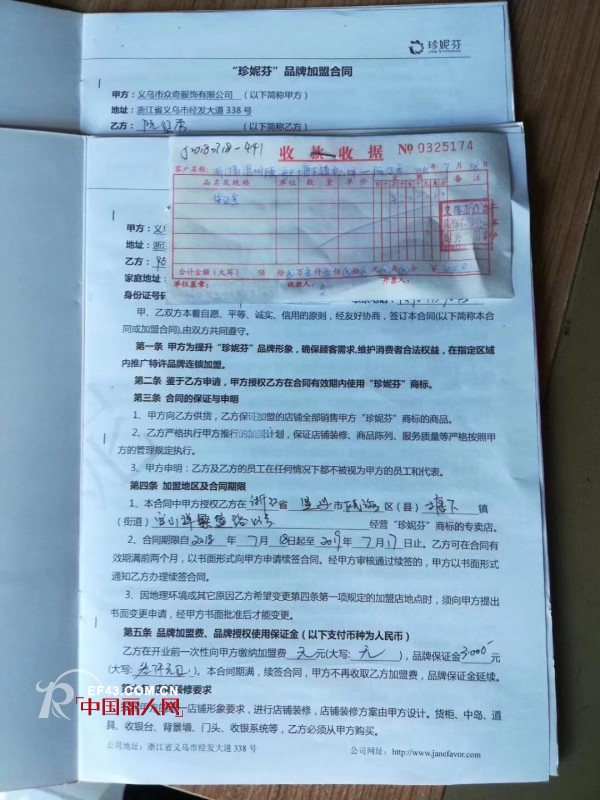 珍妮芬
“珍妮芬”品牌加盟合同
甲方：义乌市众奇服饰有限公司 （以下简称甲方）
地址：浙江省义乌市经发大道 338 号
乙方： （以下简称乙方）
收款收据 №0325174
客户名称：
品名及规格 单位 数量 单价 备注
保证金
合计金额（大写） 佰 拾 万 仟 佰 拾 元 角 分 ¥
单位盖章： 收款人： 开票人：
甲方：义
地址：浙
乙方：
家庭地址：
身份证号码
甲、乙双方本着自愿、平等、诚实、信用的原则，经友好协商，签订本合同(以下简称本合
同或加盟合同),由双方共同遵守。
第一条 甲方为提升“珍妮芬”品牌形象，确保顾客需求,维护消费者合法权益，在指定区域
内推广特许品牌连锁加盟。
第二条 鉴于乙方申请，甲方授权乙方在合同有效期内使用“珍妮芬”商标。
第三条 合同的保证与申明
1、甲方向乙方供货，乙方保证加盟的店铺全部销售甲方“珍妮芬”商标的商品。
2、乙方严格执行甲方推行的加盟计划，保证店铺装修、商品陈列、服务质量等严格按照甲
方的管理规定执行。
3、甲方申明：乙方及乙方的员工在任何情况下都不被视为甲方的员工和代表。
第四条 加盟地区及合同期限
1、本合同中甲方授权乙方在 浙江 省 温州 市 瓯海 区（县） 塘下 镇
（街道） 经营“珍妮芬”商标的专卖店。
2、合同期限自 2018 年 7 月 18 日起至 2019 年 7 月 17 日止。乙方可在合同有
效期满前两个月，以书面形式向甲方申请续签合同。经甲方审核通过续签的，甲方以书面形式
通知乙方办理续签合同。
3、因地理环境或其它原因乙方希望变更第四条第一项规定的加盟店地点时，须向甲方提出
书面变更申请，经甲方书面批准后才能变更。
第五条 品牌加盟费、品牌授权使用保证金（以下支付币种为人民币）
乙方在开业前一次性向甲方缴纳加盟费 元 元(大写: 元 )，品牌保证金 3000 元
(大写: 叁仟元正 )。本合同期满，续签合同，甲方不再收取乙方加盟费，品牌保证金延续。
装修要求
店铺形象要求，进行店铺装修，店铺装修方案由甲方设计。货柜、中岛、道
具、收银台、背景墙、门头、收银系统等，乙方必须从甲方购买。
公司地址：浙江省义乌市经发大道 338 号 公司网址：http://www.janefavor.com
EF43.COM.CN
中国丽人网